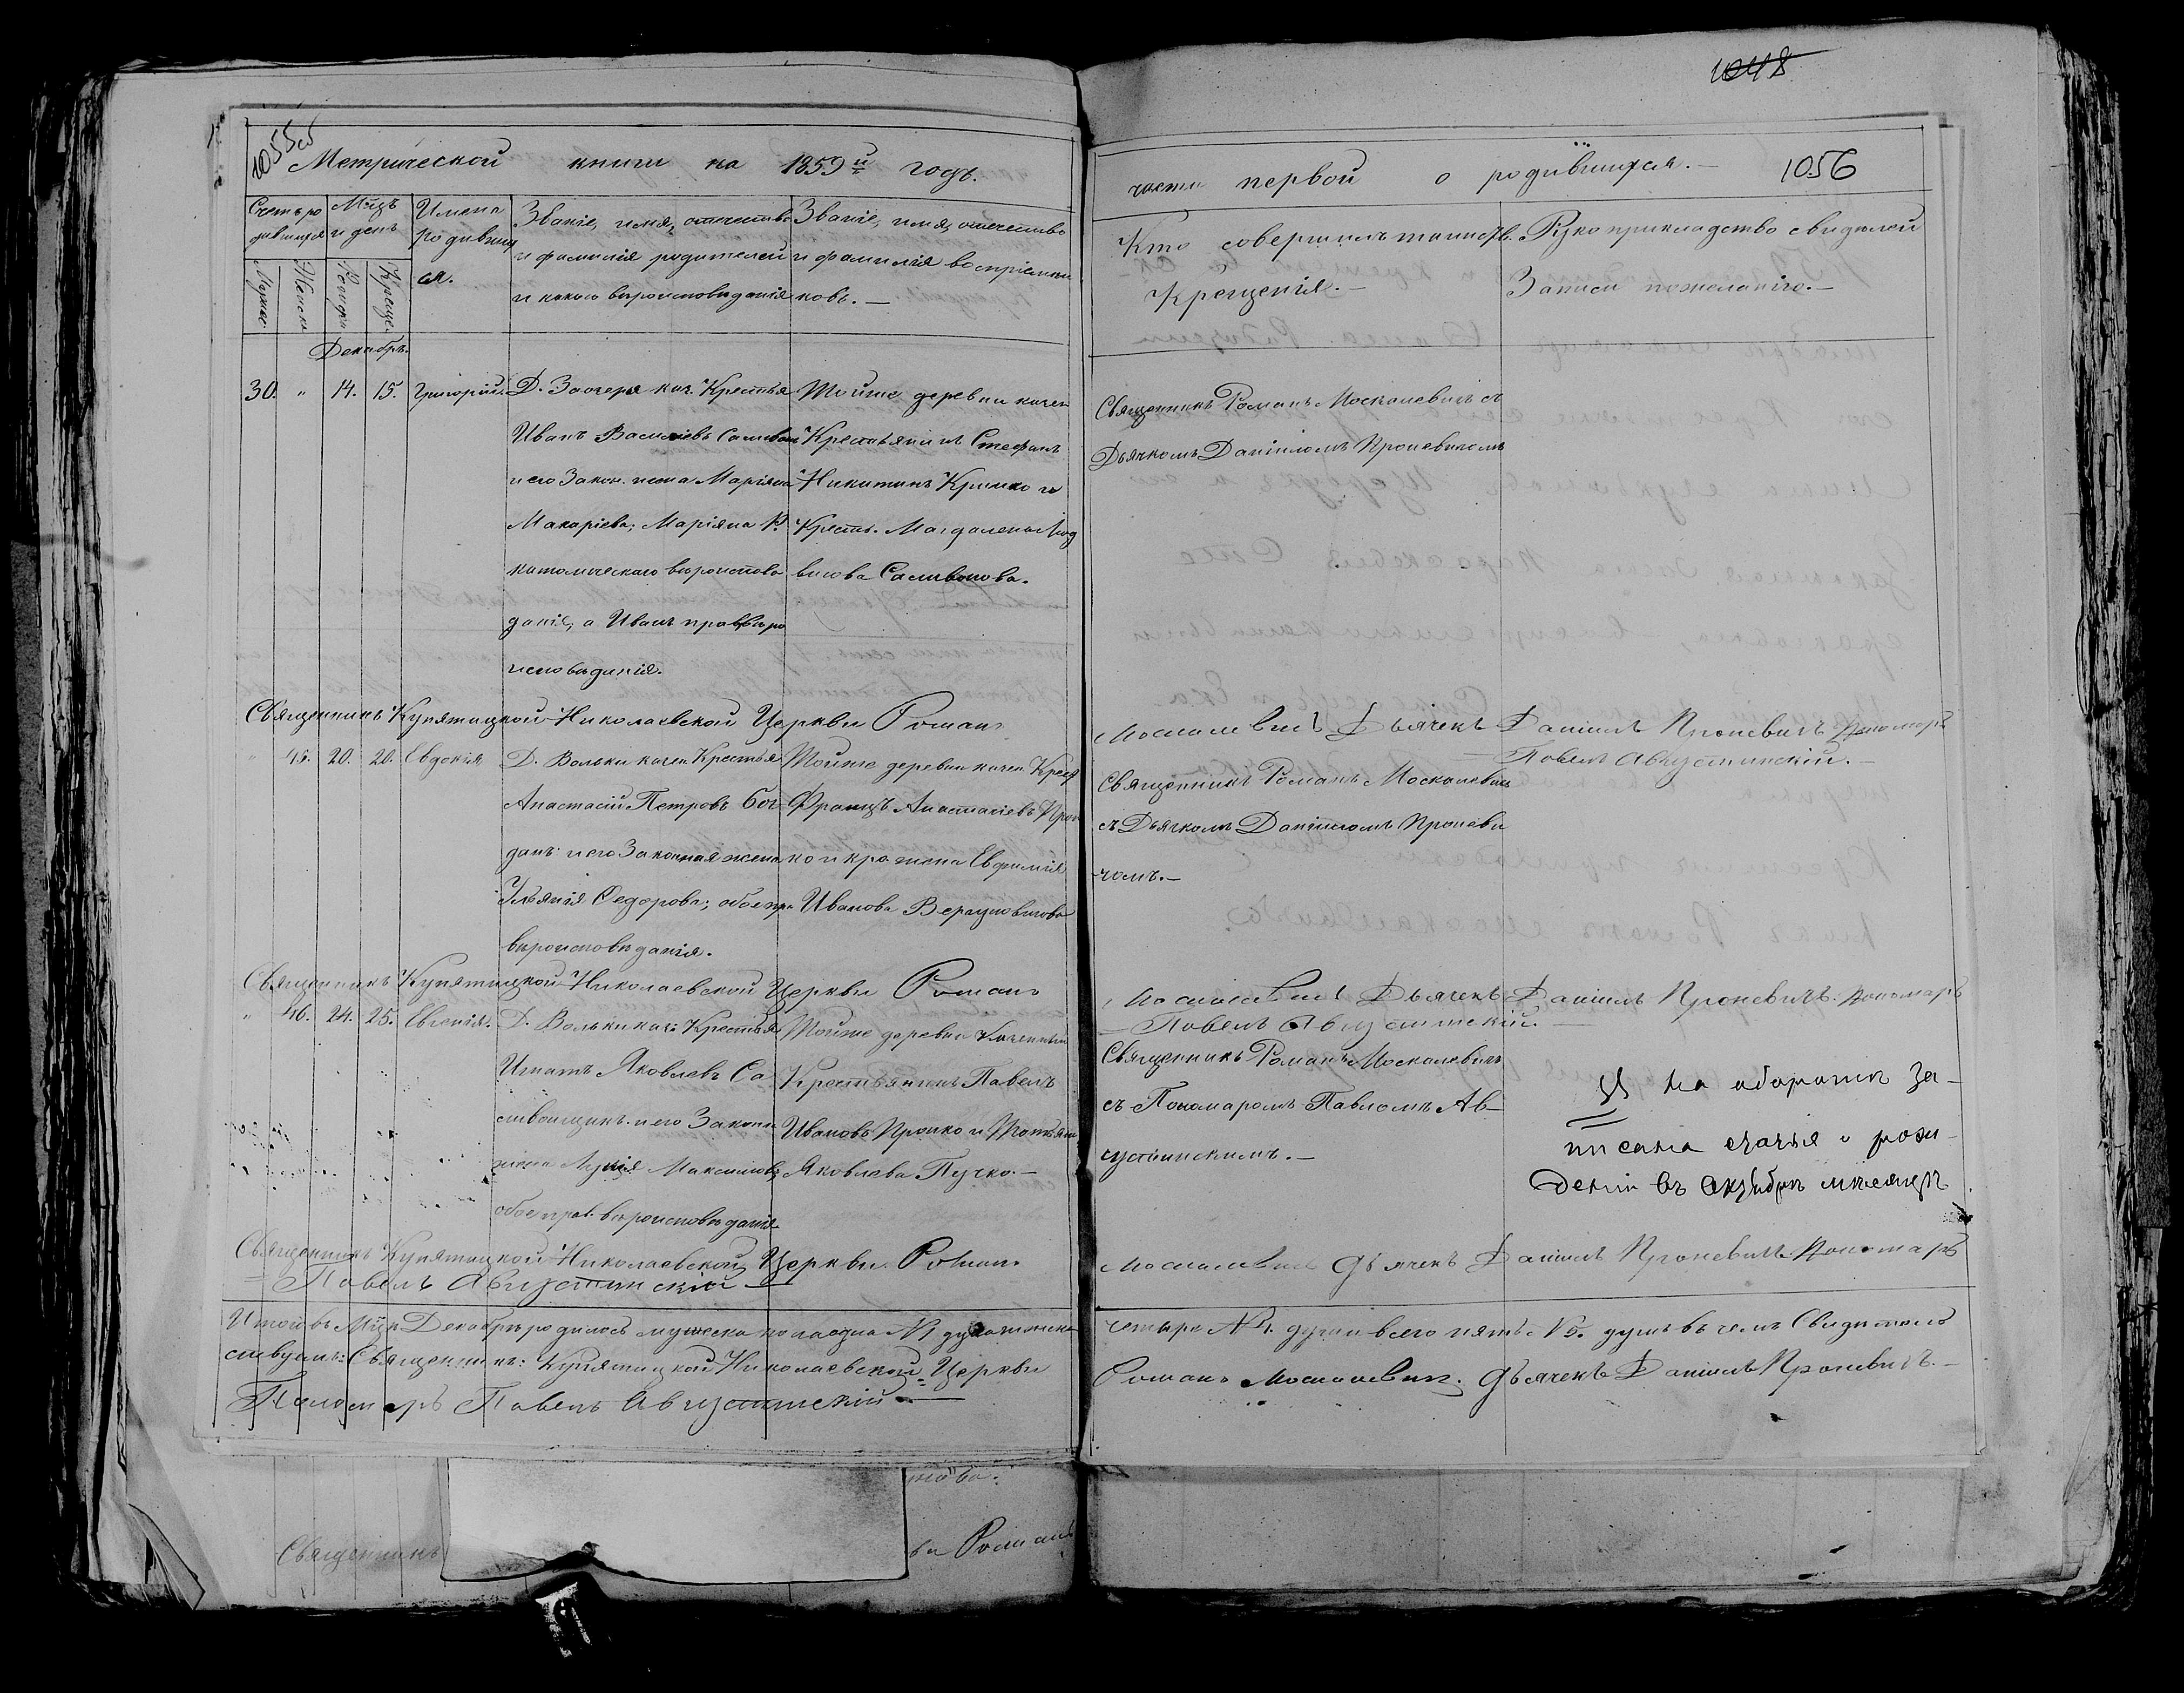 1048
1055об
Метрической книги на 1859й годъ.
части первой о родившихся.— 1056
Счетъ ро
дившихся
Мѣцъ
и день
Имена
родивших
ся.
Званіе, имя, отечество
и фамилія родителей
и какого вѣроисповѣданія
Званіе, имя, отечество
и фамилія воспріемни
ковъ.—
Кто совершилъ таинство
Крещенія.—
Рукоприкладство свидѣтелей
Записи пожеланію.—
Мужес
Женск
Рожде
Креще
Декабрь.
30. „ 14. 15. Григорій
Д. Заозерья каз. Крестья
Иванъ Васильевъ
и его Закон. жена Маріяна
Макаріева; Маріяна Р.
католическаго вѣроисповѣ
данія, а Иванъ прав. вѣро
исповѣданія.
Тойже деревни казен
Крестьянинъ Стефанъ
Никитинъ Кримко и
Крестья. Магдалена Люд
викова Саливонова.
Священникъ Романъ Москалевичъ съ
Дьячкомъ Даніиломъ Проневичомъ
Священникъ Купятицкой Николаевской Церкви Романъ
Москалевичъ Дьячекъ Даніилъ Проневичъ Пономарь
Павелъ Августинскій.—
„ 45. 20. 20. Евдокія
Д. Вольки казен Крестья
Анастасій Петровъ Бог
данъ: и его Законная жена
Ульянія Федорова; обое пра
вѣроисповѣданія.
Тойже деревни казен Крест
Францъ Анастасіевъ Прон
ко и кр. жена Евфимія
Иванова
Священникъ Романъ Москалевичъ
съ Дьячкомъ Даніиломъ Проневи
чомъ.—
Священникъ Купятицкой Николаевской Церкви Романъ
Москалевичъ Дьячекъ Даніилъ Проневичъ. Пономарь
— Павелъ Августинскій.—
„ 46. 24. 25. Евгенія.
Д. Вольки каз: Крестья
Игнатъ Яковлевъ Са
ливонцикъ. и его Законн
жена Луція Максимова
обое прав. вѣроисповѣданія.
Тойже деревни Казенный
Крестьянинъ Павелъ
Ивановъ Пронко и Татьяна
Яковлева Пучко.—
Священникъ Романъ Москалевичъ
съ Пономаромъ Павломъ Ав-
густинскимъ.—
на оборотѣ за-
писана статья о рож-
деніи въ Октябрѣ мѣсяцѣ
Священникъ Купятицкой Николаевской Церкви Романъ
Москалевичъ Дьячекъ Даніилъ Проневичъ Пономарь
— Павелъ Августинскій —
Итого въ Мцѣ Декабрѣ родилось мужеска пола одна № 1 душа женска
четыре № 4. души всего пять № 5. душъ въ чемъ Свидѣтель
ствуемъ: Священникъ: Купятицкой Николаевской Церкви
Романъ Москалевичъ. Дьячекъ Даніилъ Проневичъ.—
Пономарь Павелъ Августинскій.—
Священникъ
ва Романъ